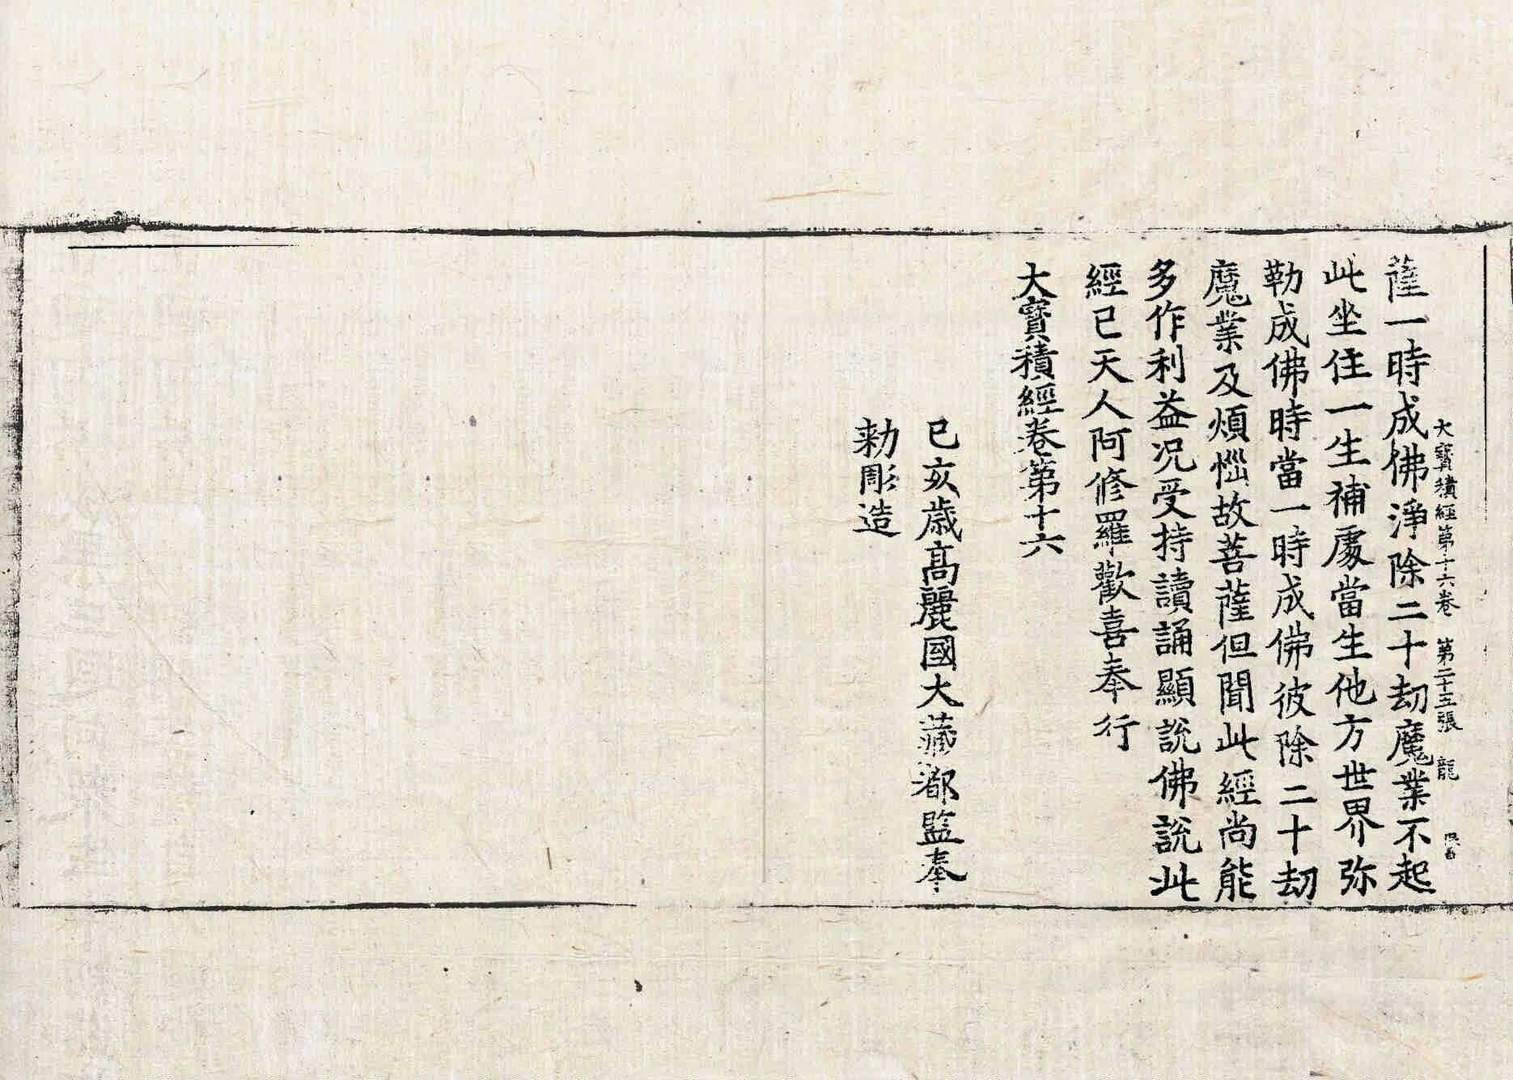 大寶積經第十六卷 第二十五張 龍
薩一時成佛淨除二十劫魔業不起
此坐住一生補處當生他方世界弥
勒成佛時當一時成佛彼除二十劫
魔業及煩惱故菩薩但聞此經尚能
多作利益况受持讀誦顯說佛說此
經已天人阿修羅歡喜奉行
大寶積經卷第十六
已亥歲高麗國大藏都監奉
勅彫造